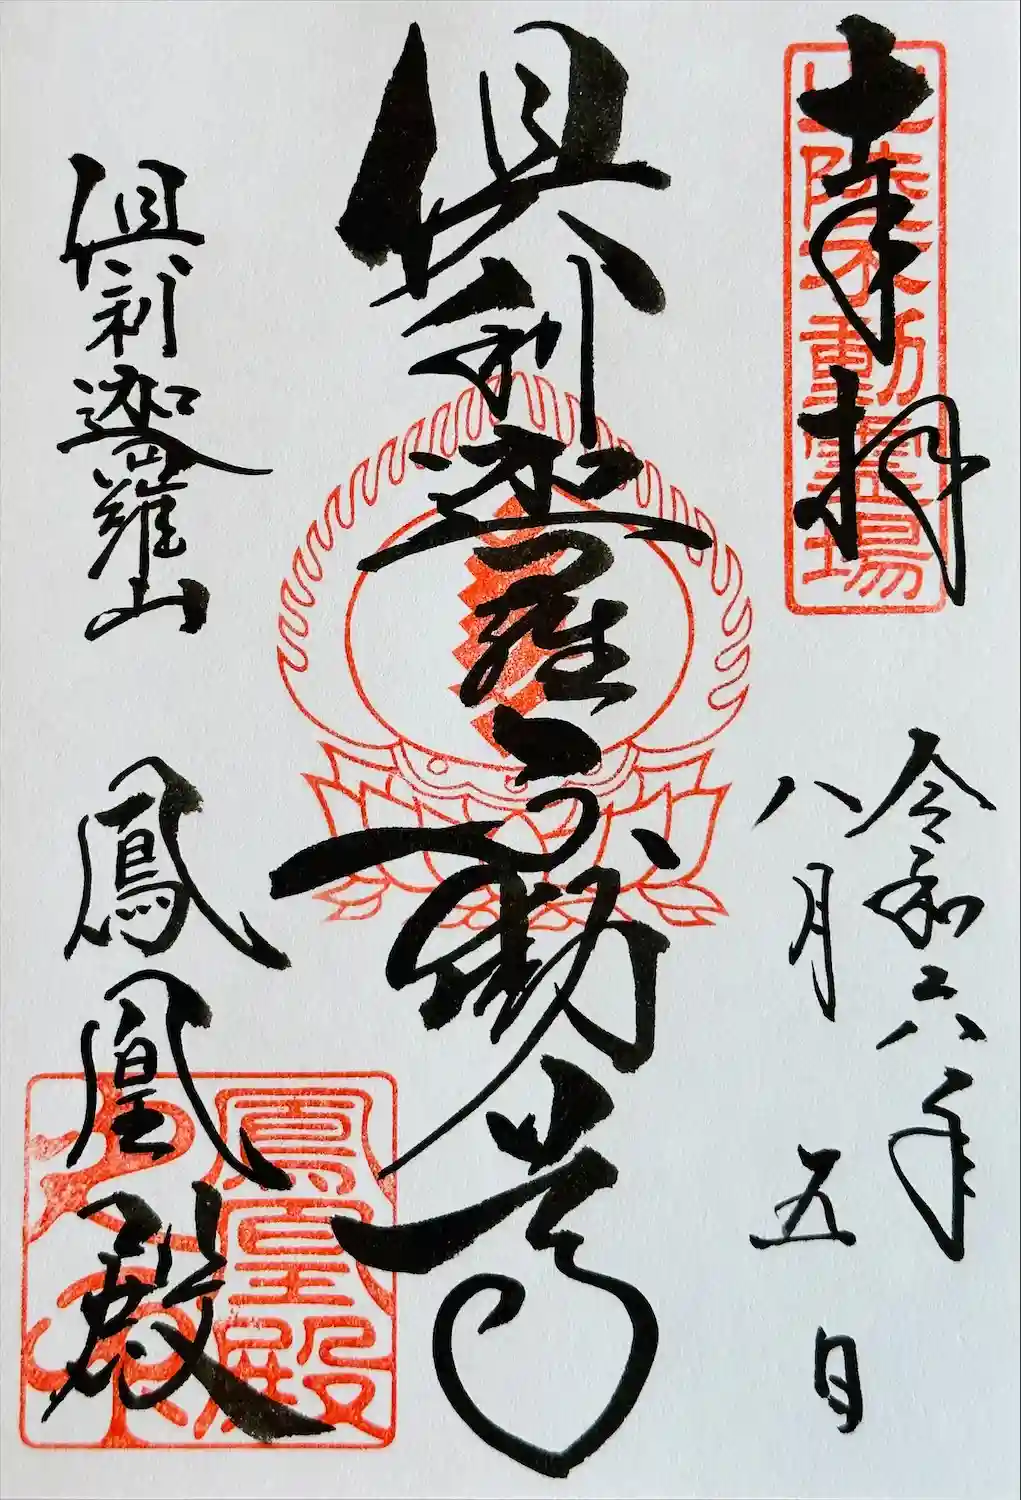 北陸不動霊場
奉拝
令和六年
八月五日
倶利迦羅不動尊
倶利迦羅山
鳳凰殿
鳳凰殿